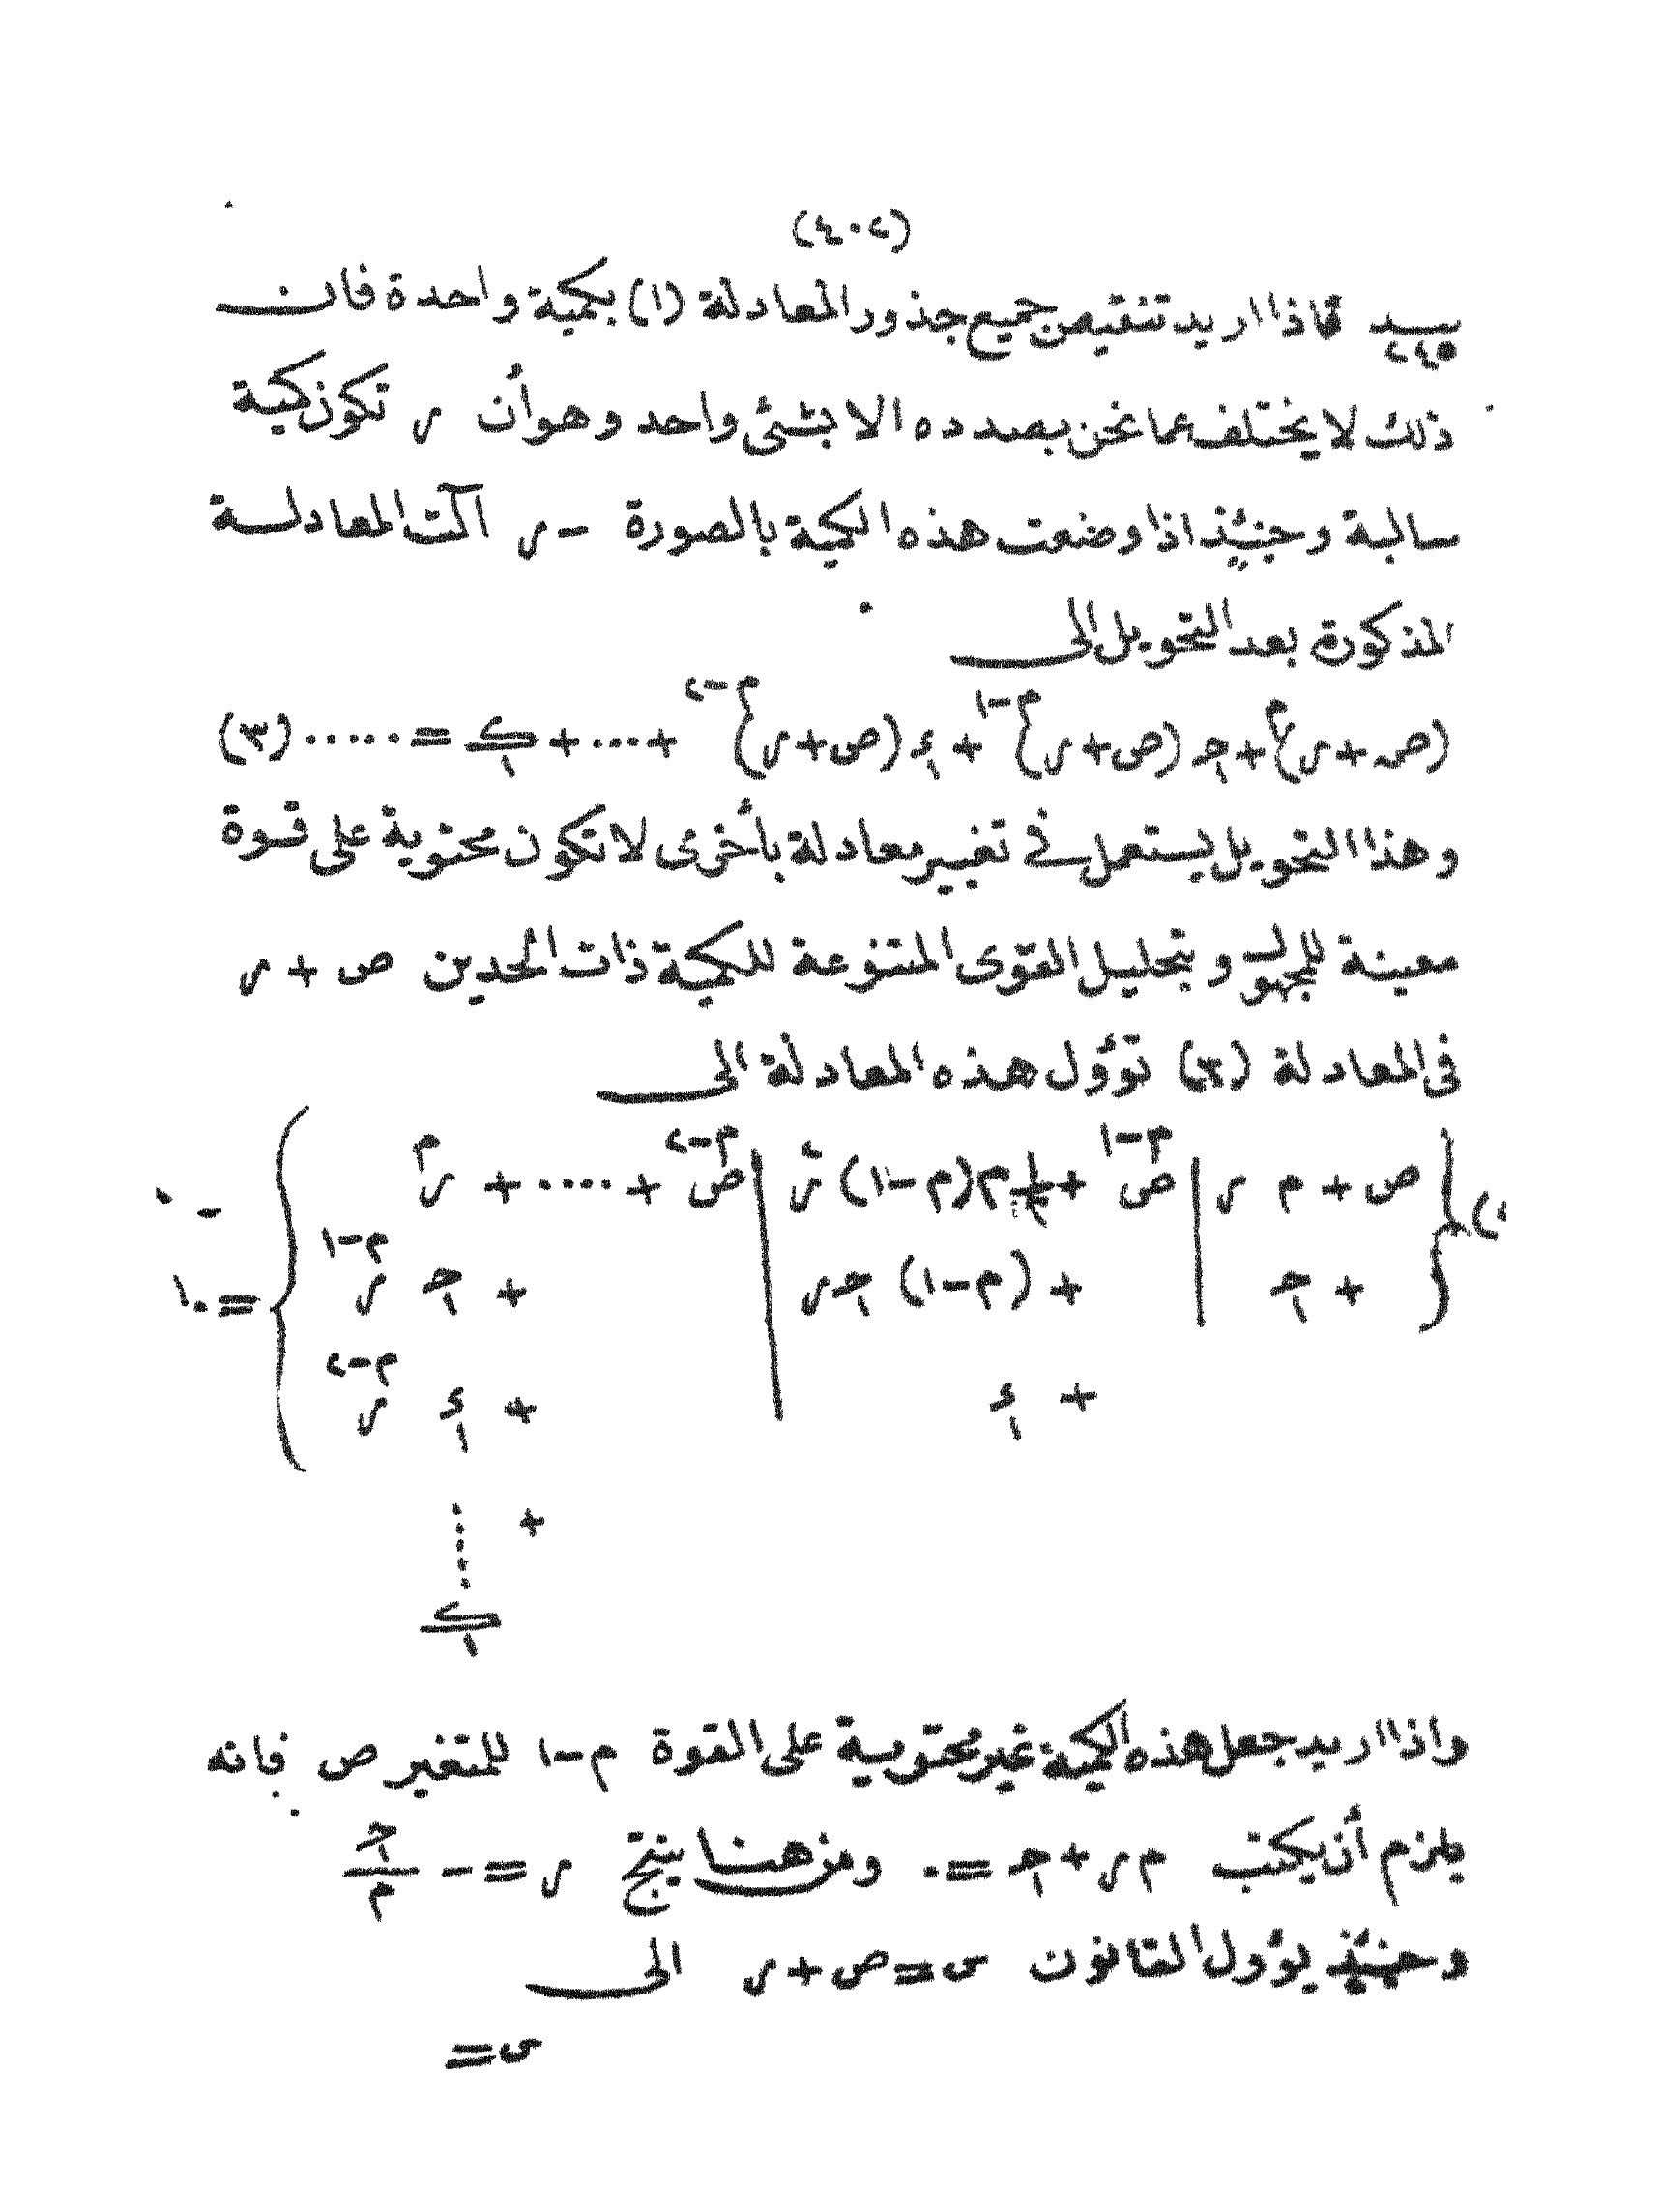 (٤٠٢)
بند ٢٤٥ فاذا اريد تنقيص جميع جذور المعادلة (١) بكمية واحدة فان
ذلك لا يختلف عما نحن بصدده الا بشئ واحد وهو أن ر تكون كمية
سالبة وحينئذ اذا وضعت هذه الكمية بالصورة - ر آلت المعادلة
المذكورة بعد التحويل الى
(ص+ر)^م + حـ١ (ص+ر)^(م-١) + ء١ (ص+ر)^(م-٢) + ... + ك١ = ..... (٣)
وهذا التحويل يستعمل في تغيير معادلة بأخرى لا تكون محتوية على قوة
معينة للمجهول وبتحليل القوى المتنوعة للكمية ذات الحدين ص + ر
فى المعادلة (٣) تؤول هذه المعادلة الى
ص + م ر | ص^(م-١) + ١/٢ م(م-١) ر^٢ | ص^(م-٢) + .... + ر^م
+ حـ١ | + (م-١) حـ١ ر | + حـ١ ر^(م-١) = ٠
+ ء١ | + ء١ ر^(م-٢)
+ ⋮
ك١
واذا اريد جعل هذه الكمية غير محتوية على القوة م-١ للمتغير ص فانه
يلزم أن يكتب م ر + حـ١ = ٠ ومن هنا ينتج ر = - حـ١/م
وحينئذ يؤول القانون س = ص + ر الى
س =